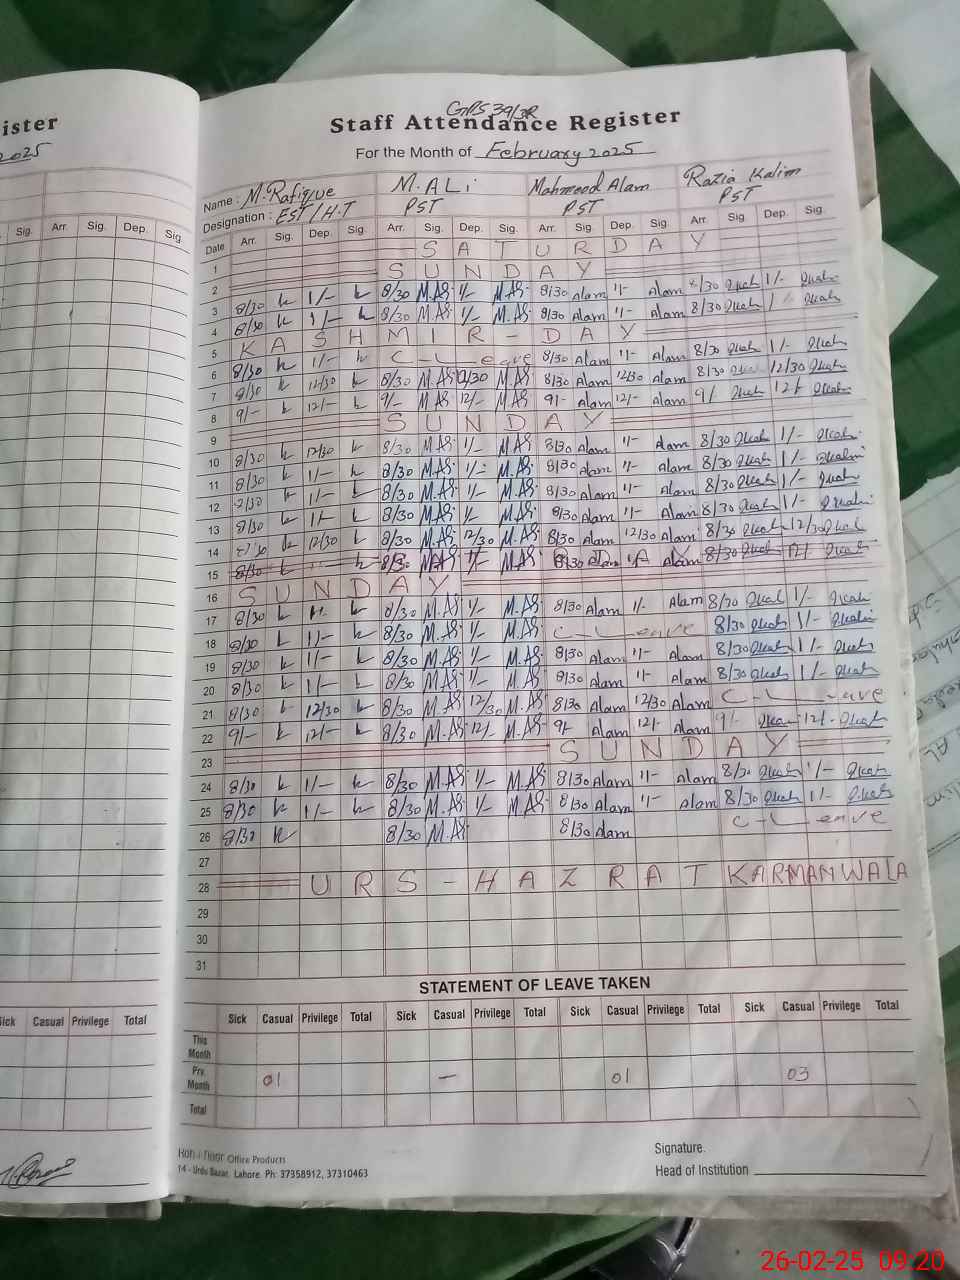 ister
2025
Sig. Arr. Sig. Dep. Sig.
GPS 39/3R
Staff Attendance Register
For the Month of February 2025
Name : M.Rafique M.ALi Mahmood Alam Razia Kalim
Designation : EST/H.T PST PST PST
Date Arr. Sig. Dep. Sig. Arr. Sig. Dep. Sig. Arr. Sig. Dep. Sig. Arr. Sig. Dep. Sig.
1 SATURDAY
2 SUNDAY
3 8/30 1/- 8/30 M.Ali 1/- M.Ali 8/30 Alam 1/- Alam 8/30 1/-
4 8/30 1/- 8/30 M.Ali 1/- M.Ali 8/30 Alam 1/- Alam 8/30
5 KASHMIR-DAY
6 8/30 1/- C-Leave 8/30 Alam 1/- Alam 8/30 1/-
7 8/30 12/30 8/30 M.Ali 12/30 M.Ali 8/30 Alam 12/30 Alam 8/30 12/30
8 9/- 12/- 9/- M.Ali 12/- M.Ali 9/- Alam 12/- Alam 9/- 12/-
9 SUNDAY
10 8/30 12/30 8/30 M.Ali 1/- M.Ali 8/30 Alam 1/- Alam 8/30 1/-
11 8/30 1/- 8/30 M.Ali 1/- M.Ali 8/30 Alam 1/- Alam 8/30 1/-
12 8/30 1/- 8/30 M.Ali 1/- M.Ali 8/30 Alam 1/- Alam 8/30 1/-
13 8/30 1/- 8/30 M.Ali 1/- M.Ali 8/30 Alam 1/- Alam 8/30 1/-
14 8/30 12/30 8/30 M.Ali 12/30 M.Ali 8/30 Alam 12/30 Alam 8/30 12/30
15 8/30 8/30 M.Ali 1/- M.Ali 8/30 Alam 1/- Alam 8/30 12/-
16 SUNDAY
17 8/30 1/- 8/30 M.Ali 1/- M.Ali 8/30 Alam 1/- Alam 8/30 1/-
18 8/30 1/- 8/30 M.Ali 1/- M.Ali C-Leave 8/30 1/-
19 8/30 1/- 8/30 M.Ali 1/- M.Ali 8/30 Alam 1/- Alam 8/30 1/-
20 8/30 1/- 8/30 M.Ali 1/- M.Ali 8/30 Alam 1/- Alam 8/30 1/-
21 8/30 12/30 8/30 M.Ali 12/30 M.Ali 8/30 Alam 12/30 Alam C-Leave
22 9/- 12/- 8/30 M.Ali 12/- M.Ali 9/- Alam 12/- Alam 9/- 12/-
23 SUNDAY
24 8/30 1/- 8/30 M.Ali 1/- M.Ali 8/30 Alam 1/- Alam 8/30 1/-
25 8/30 1/- 8/30 M.Ali 1/- M.Ali 8/30 Alam 1/- Alam 8/30 1/-
26 8/30 8/30 M.Ali 8/30 Alam C-Leave
27
28 URS-HAZRAT KARMANWALA
29
30
31
STATEMENT OF LEAVE TAKEN
Sick Casual Privilege Total
Sick Casual Privilege Total Sick Casual Privilege Total Sick Casual Privilege Total Sick Casual Privilege Total
This Month
Prv. Month 01 — 01 03
Total
Koh-i-Noor Office Products
14 - Urdu Bazar, Lahore. Ph: 37358912, 37310463
Signature.
Head of Institution
26-02-25 09:20